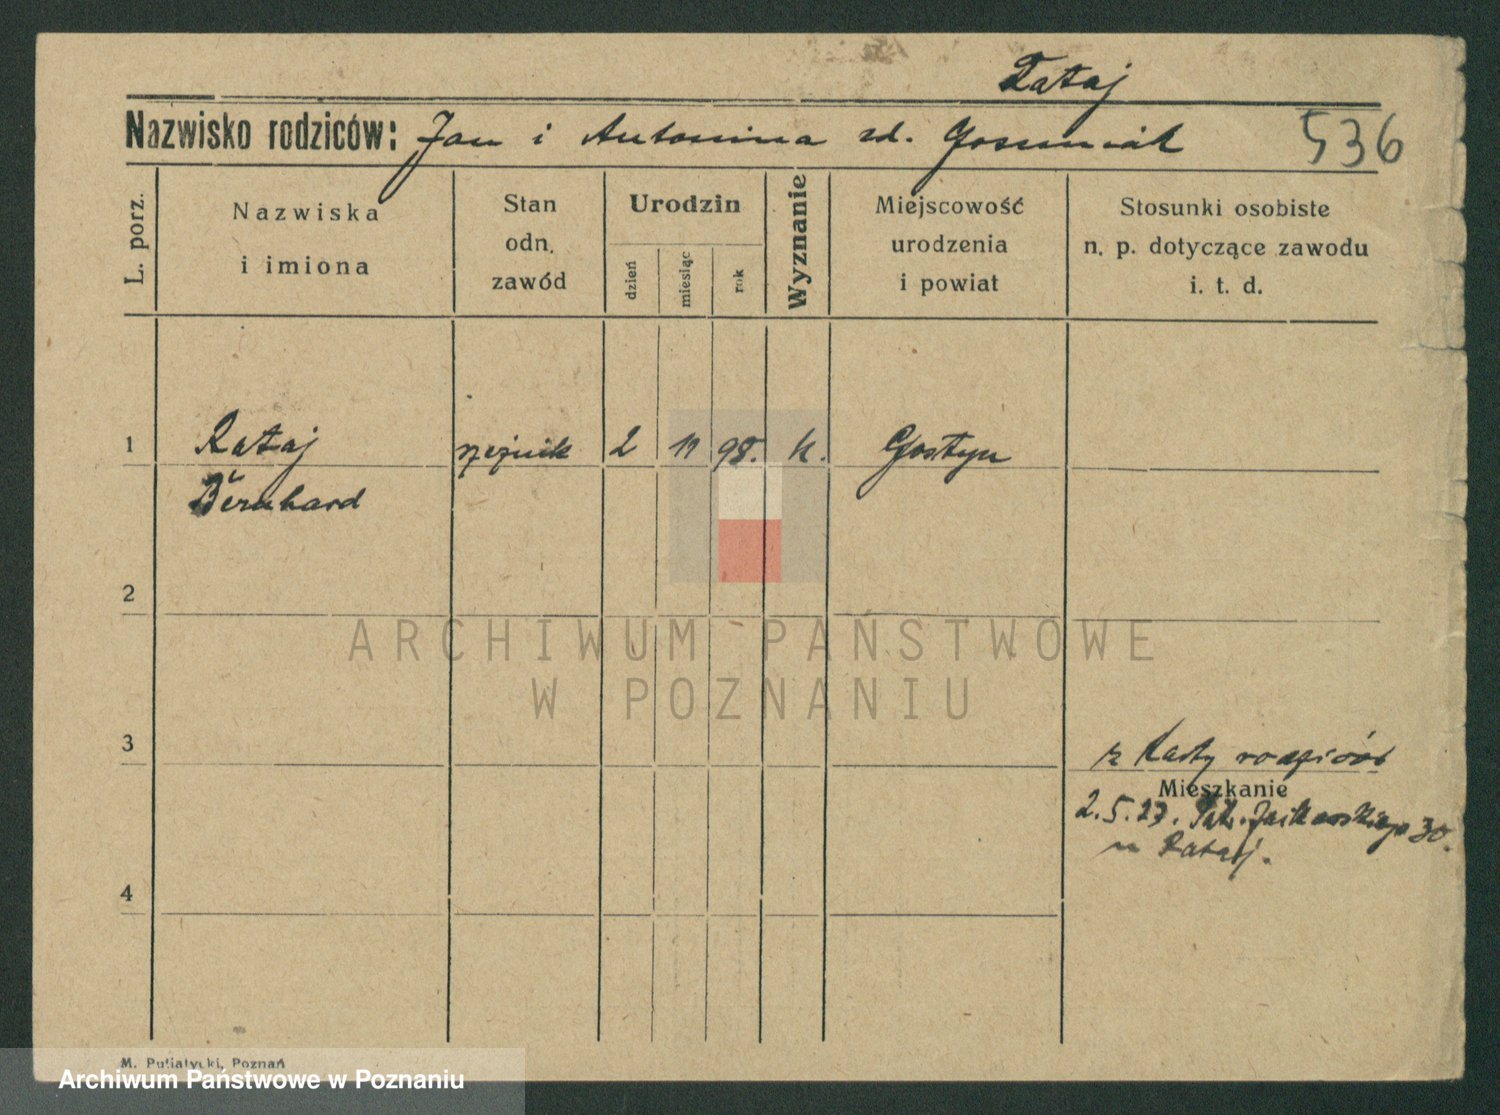 Rataj
Nazwisko rodziców: Jan i Antonina zd.
536
L. porz.
Nazwiska
i imiona
Stan
odn.
zawód
Urodzin
dzień
miesiąc
rok
Wyznanie
Miejscowość
urodzenia
i powiat
Stosunki osobiste
n. p. dotyczące zawodu
i. t. d.
1
Rataj
Bernhard
rzeźnik
2
11
98.
k.
Gostyn
2
ARCHIWUM PAŃSTWOWE
W POZNANIU
3
z karty rodziców
Mieszkanie
2.5.27. 30.
u Rataj.
4
M. Putiatycki, Poznań
Archiwum Państwowe w Poznaniu